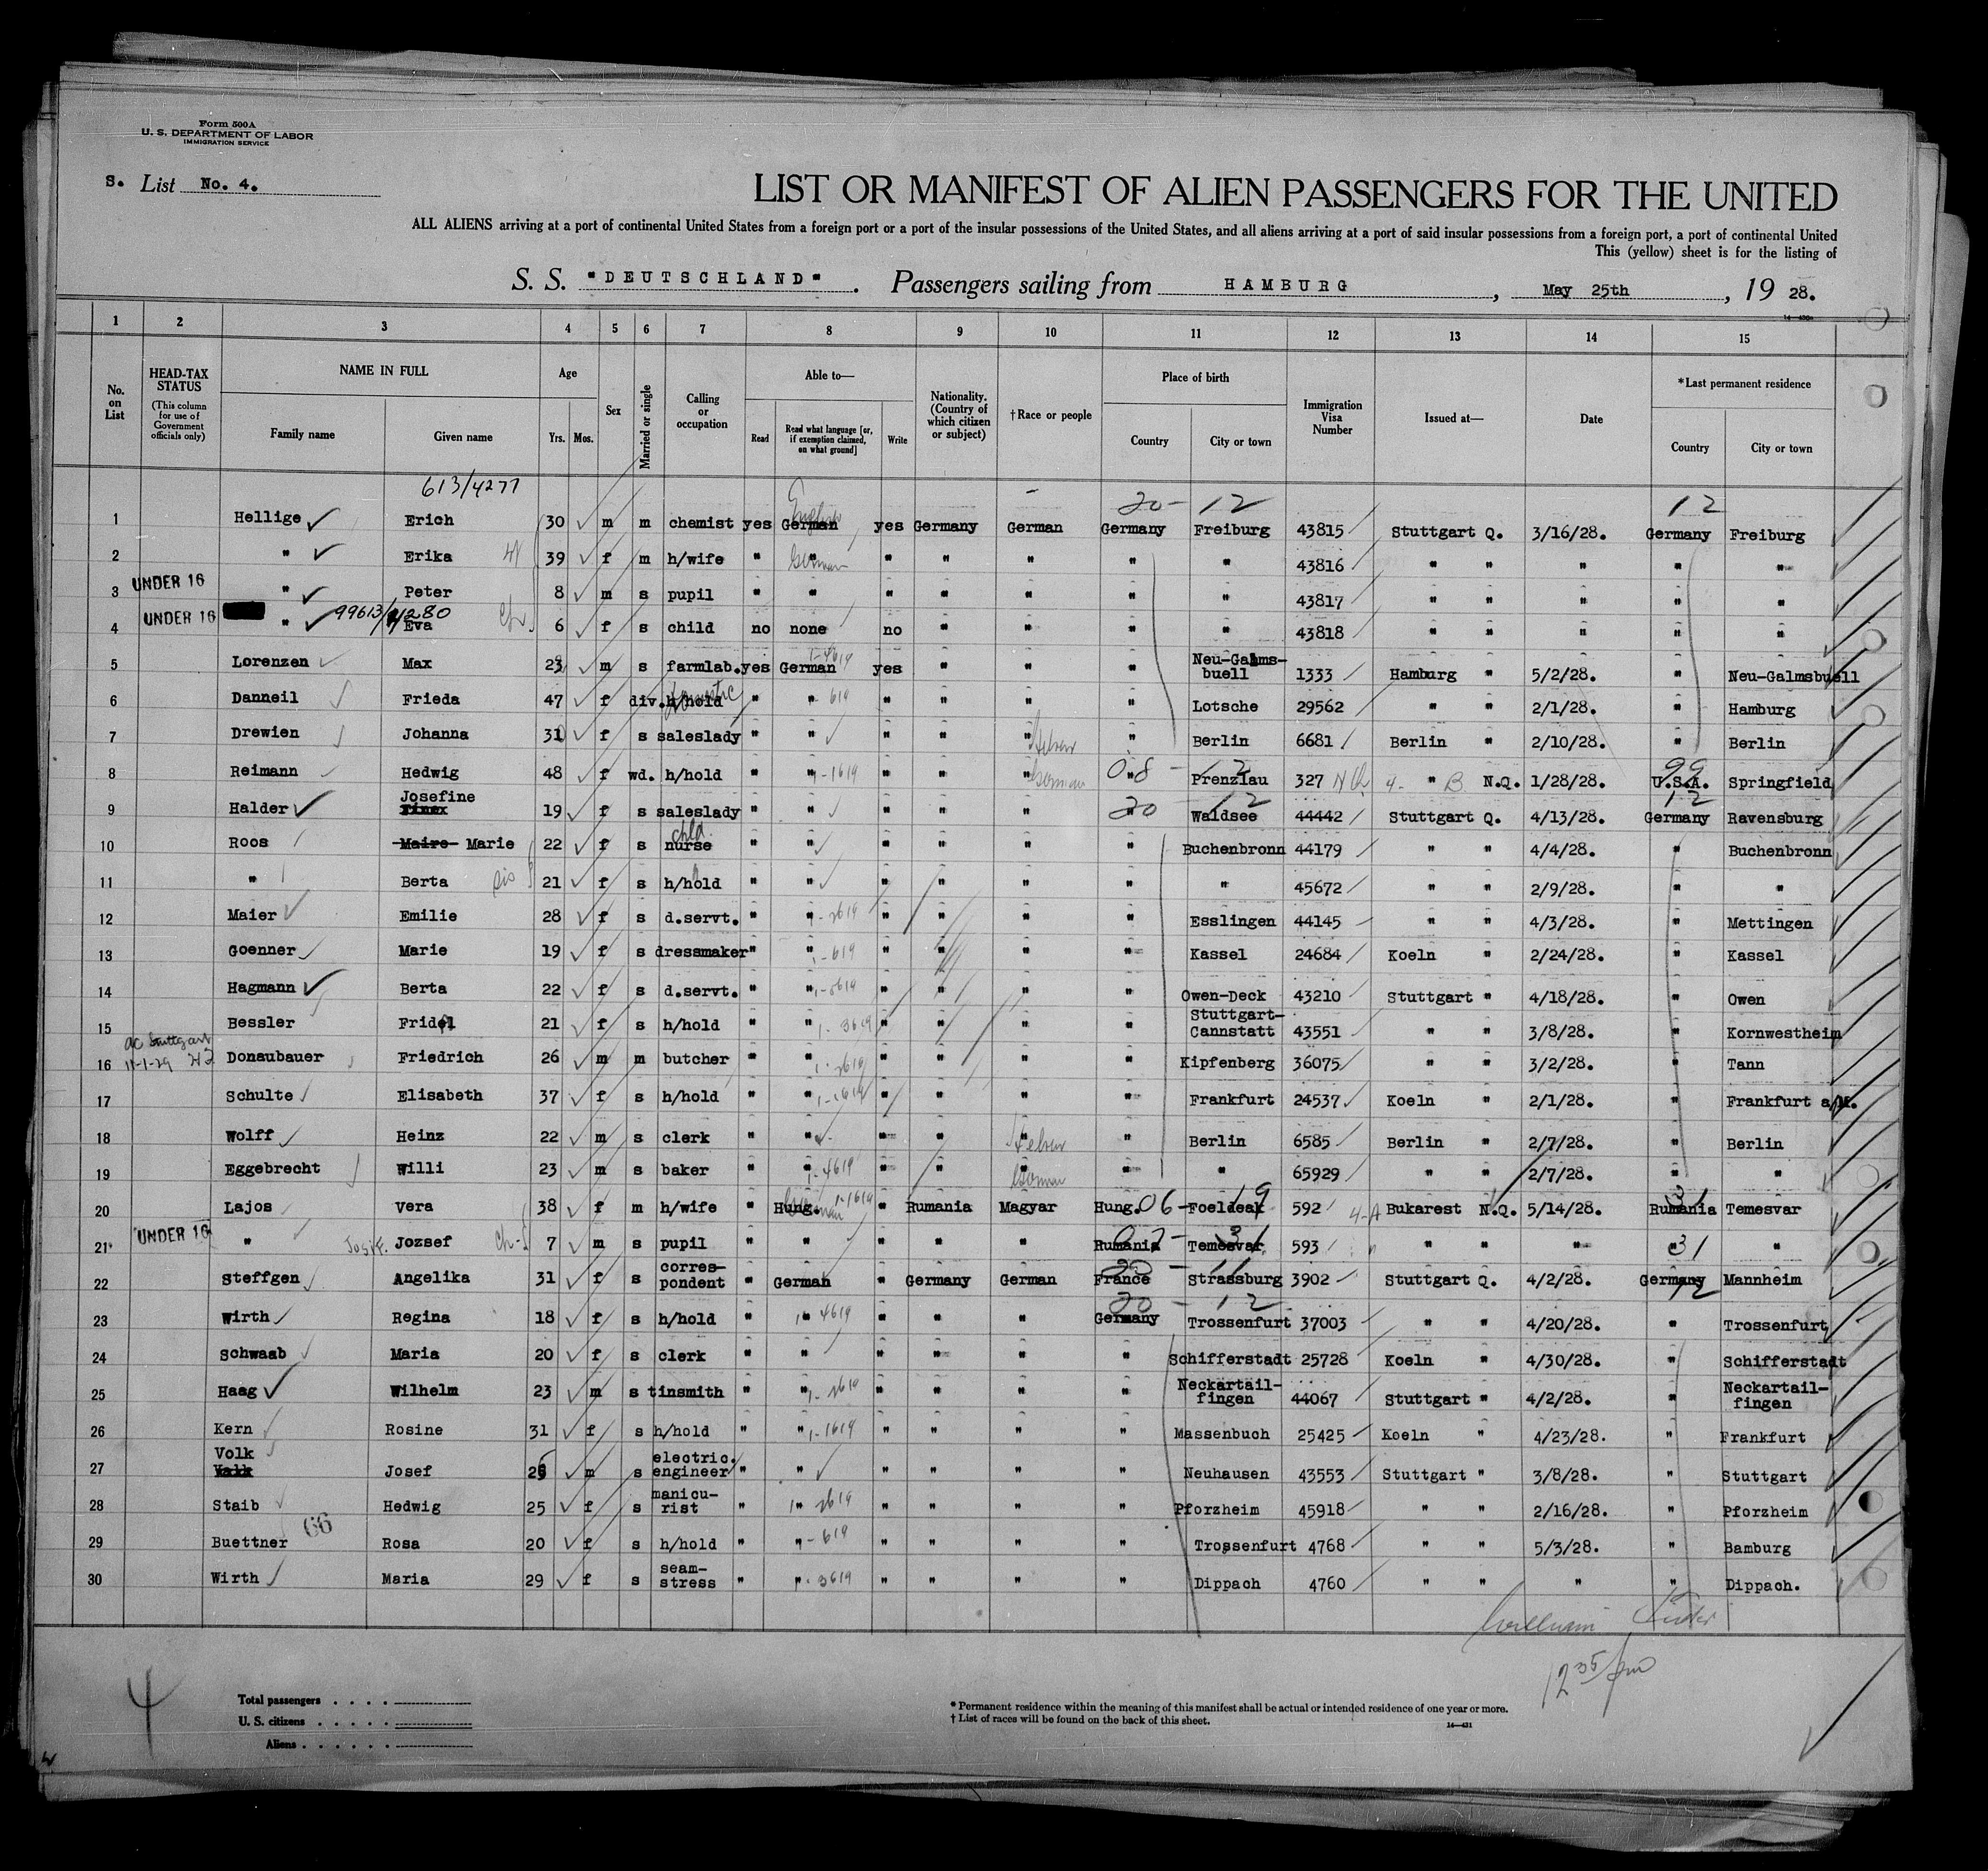 Form 500A
U. S. DEPARTMENT OF LABOR
IMMIGRATION SERVICE
S. List No. 4.
LIST OR MANIFEST OF ALIEN PASSENGERS FOR THE UNITED
ALL ALIENS arriving at a port of continental United States from a foreign port or a port of the insular possessions of the United States, and all aliens arriving at a port of said insular possessions from a foreign port, a port of continental United
This (yellow) sheet is for the listing of
S. S. "DEUTSCHLAND". Passengers sailing from HAMBURG, May 25th, 19 28.
1 2 3 4 5 6 7 8 9 10 11 12 13 14 15
No. on List
HEAD-TAX STATUS
(This column for use of Government officials only)
NAME IN FULL
Family name Given name
Age
Yrs. Mos.
Sex
Married or single
Calling or occupation
Able to—
Read Read what language [or, if exemption claimed, on what ground] Write
Nationality. (Country of which citizen or subject)
†Race or people
Place of birth
Country City or town
Immigration Visa Number
Issued at—
Date
*Last permanent residence
Country City or town
613/4277
20- 12 12
1 Hellige Erich 30 m m chemist yes German English yes Germany German Germany Freiburg 43815 Stuttgart Q. 3/16/28. Germany Freiburg
2 " Erika 39 f m h/wife " " German " " " " " 43816 " " " " "
UNDER 16
3 " Peter 8 m s pupil " " " " " " " 43817 " " " " "
UNDER 16 99613/4280
4 " Eva 6 f s child no none no " " " " 43818 " " " " "
5 Lorenzen Max 23 m s farmlab. yes German 1-4619 yes " " " Neu-Galmsbuell 1333 Hamburg " 5/2/28. " Neu-Galmsbuell
6 Danneil Frieda 47 f div. h/hold domestic " " 619 " " " " Lotsche 29562 " " 2/1/28. " Hamburg
7 Drewien Johanna 31 f s saleslady " " " " " Hebrew " Berlin 6681 Berlin " 2/10/28. " Berlin
8 Reimann Hedwig 48 f wd. h/hold " " 1-1619 " " " German " 08 - 12 Prenzlau 327 4- " B N.Q. 1/28/28. 99 U.S.A. Springfield
9 Halder Josefine 19 f s saleslady " " " " " " 20 - 12 Waldsee 44442 Stuttgart Q. 4/13/28. 12 Germany Ravensburg
10 Roos Maire Marie 22 f s chld. nurse " " " " " " Buchenbronn 44179 " " 4/4/28. " Buchenbronn
11 " Berta sis 21 f s h/hold " " " " " " " 45672 " " 2/9/28. " "
12 Maier Emilie 28 f s d.servt. " " 1-2619 " " " " Esslingen 44145 " " 4/3/28. " Mettingen
13 Goenner Marie 19 f s dressmaker " " 1-619 " " " " Kassel 24684 Koeln " 2/24/28. " Kassel
14 Hagmann Berta 22 f s d.servt. " " " " " " Owen-Deck 43210 Stuttgart " 4/18/28. " Owen
15 Bessler Fridel 21 f s h/hold " " 1-3619 " " " " Stuttgart-Cannstatt 43551 " " 3/8/28. " Kornwestheim
Stuttgart
11-1-29
16 Donaubauer Friedrich 26 m m butcher " " 1-2619 " " " " Kipfenberg 36075 " " 3/2/28. " Tann
17 Schulte Elisabeth 37 f s h/hold " " 1-1619 " " " " Frankfurt 24537 Koeln " 2/1/28. " Frankfurt a/M.
18 Wolff Heinz 22 m s clerk " " " " " Hebrew " Berlin 6585 Berlin " 2/7/28. " Berlin
19 Eggebrecht Willi 23 m s baker " " 1-4619 " " " German " " 65929 " " 2/7/28. " "
20 Lajos Vera 38 f m h/wife " Hung. German 1-1619 " Rumania Magyar Hung. 06- 19 Foeldeak 592 4-A Bukarest N.Q. 5/14/28. 31 Rumania Temesvar
UNDER 16
21 " Josif. Jozsef 7 m s pupil " " " " " Rumania 07- 31 Temesvar 593 " " " " 31 "
22 Steffgen Angelika 31 f s correspondent " German " Germany German France 20 - 11 Strassburg 3902 Stuttgart Q. 4/2/28. Germany 12 Mannheim
23 Wirth Regina 18 f s h/hold " " 4619 " " " Germany 20 - 12 Trossenfurt 37003 " " 4/20/28. " Trossenfurt
24 Schwaab Maria 20 f s clerk " " " " " " Schifferstadt 25728 Koeln " 4/30/28. " Schifferstadt
25 Haag Wilhelm 23 m s tinsmith " " 1-2619 " " " " Neckartailfingen 44067 Stuttgart " 4/2/28. " Neckartailfingen
26 Kern Rosine 31 f s h/hold " " 1-1619 " " " " Massenbuch 25425 Koeln " 4/23/28. " Frankfurt
27 Volk Josef 26 m s electric. engineer " " " " " " Neuhausen 43553 Stuttgart " 3/8/28. " Stuttgart
28 Staib Hedwig 25 f s manicurist " " 2619 " " " " Pforzheim 45918 " " 2/16/28. " Pforzheim
66
29 Buettner Rosa 20 f s h/hold " " - 619 " " " " Trossenfurt 4768 " " 5/3/28. " Bamburg
30 Wirth Maria 29 f s seamstress " " 3619 " " " " Dippach 4760 " " " " Dippach.
12 35/pm
4
Total passengers
U. S. citizens
Aliens
* Permanent residence within the meaning of this manifest shall be actual or intended residence of one year or more.
† List of races will be found on the back of this sheet.
14—431